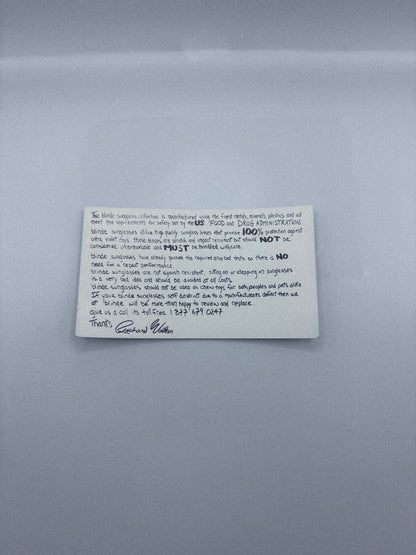 The blinde sunglass collection is manufactured using the finest metals, minerals, plastics and all
meet the requirements for safety set by the U.S. FOOD and DRUG ADMINISTRATION.
blinde sunglasses utilize high quality sunglass lenses that provide 100% protection against
ultra violet rays. these lenses are scratch and impact resistant but should NOT be
considered unbreakable and MUST be handled with care.
blinde sunglasses have already passed the required drop ball tests so there is NO
need for a repeat performance.
blinde sunglasses are not squish resistant. sitting on or stepping on sunglasses
is a very bad idea and should be avoided at all costs.
blinde sunglasses should not be used as chew toys for both peoples and pets alike
If your blinde sunglasses self destruct due to a manufacturers defect then we
at blinde will be more than happy to review and replace.
give us a call its toll free 1 877 679 0247
Thanks